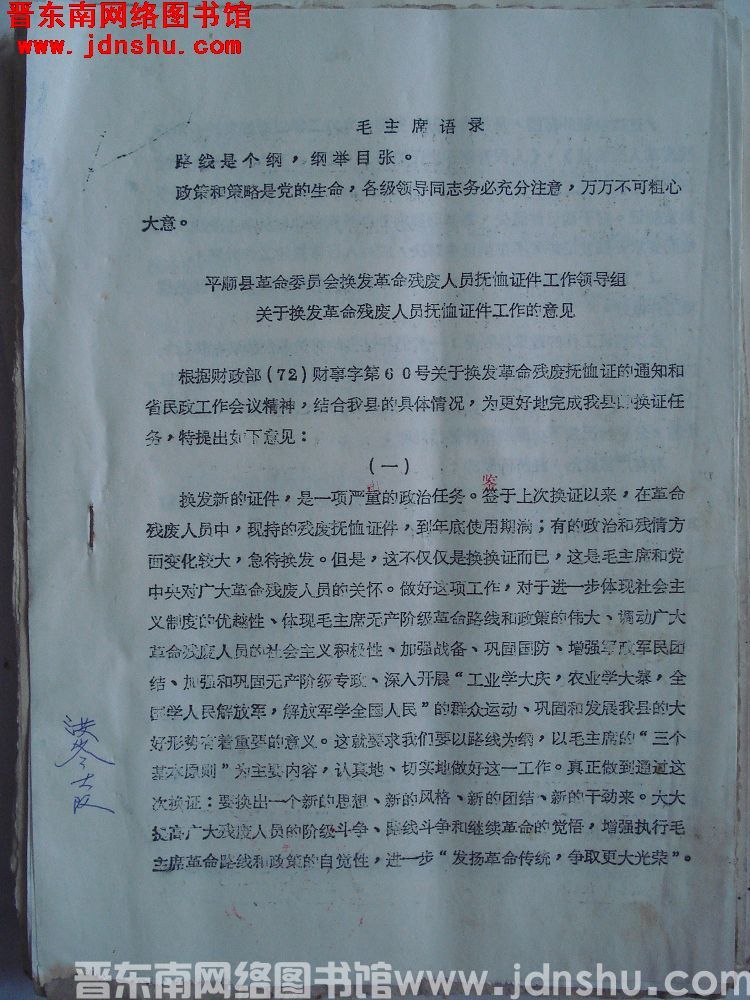 晋东南网络图书馆
www.jdnshu.com
毛主席语录
路线是个纲，纲举目张。
政策和策略是党的生命，各级领导同志务必充分注意，万万不可粗心
大意。
平顺县革命委员会换发革命残废人员抚恤证件工作领导组
关于换发革命残废人员抚恤证件工作的意见
根据财政部(72)财事字第60号关于换发革命残废抚恤证的通知和
省民政工作会议精神，结合我县的具体情况，为更好地完成我县换证任
务，特提出如下意见：
(一)
鉴
换发新的证件，是一项严重的政治任务。签于上次换证以来，在革命
残废人员中，现持的残废抚恤证件，到年底使用期满；有的政治和残情方
面变化较大，急待换发。但是，这不仅仅是换换证而已，这是毛主席和党
中央对广大革命残废人员的关怀。做好这项工作，对于进一步体现社会主
义制度的优越性、体现毛主席无产阶级革命路线和政策的伟大、调动广大
革命残废人员的社会主义积极性、加强战备、巩固国防、增强军政军民团
结、加强和巩固无产阶级专政、深入开展“工业学大庆，农业学大寨，全
国学人民解放军，解放军学全国人民”的群众运动、巩固和发展我县的大
好形势有着重要的意义。这就要求我们要以路线为纲，以毛主席的“三个
基本原则”为主要内容，认真地、切实地做好这一工作。真正做到通过这
次换证：要换出一个新的思想、新的风格、新的团结、新的干劲来。大大
提高广大残废人员的阶级斗争、路线斗争和继续革命的觉悟，增强执行毛
主席革命路线和政策的自觉性，进一步“发扬革命传统，争取更大光荣”。
大队
晋东南网络图书馆www.jdnshu.com